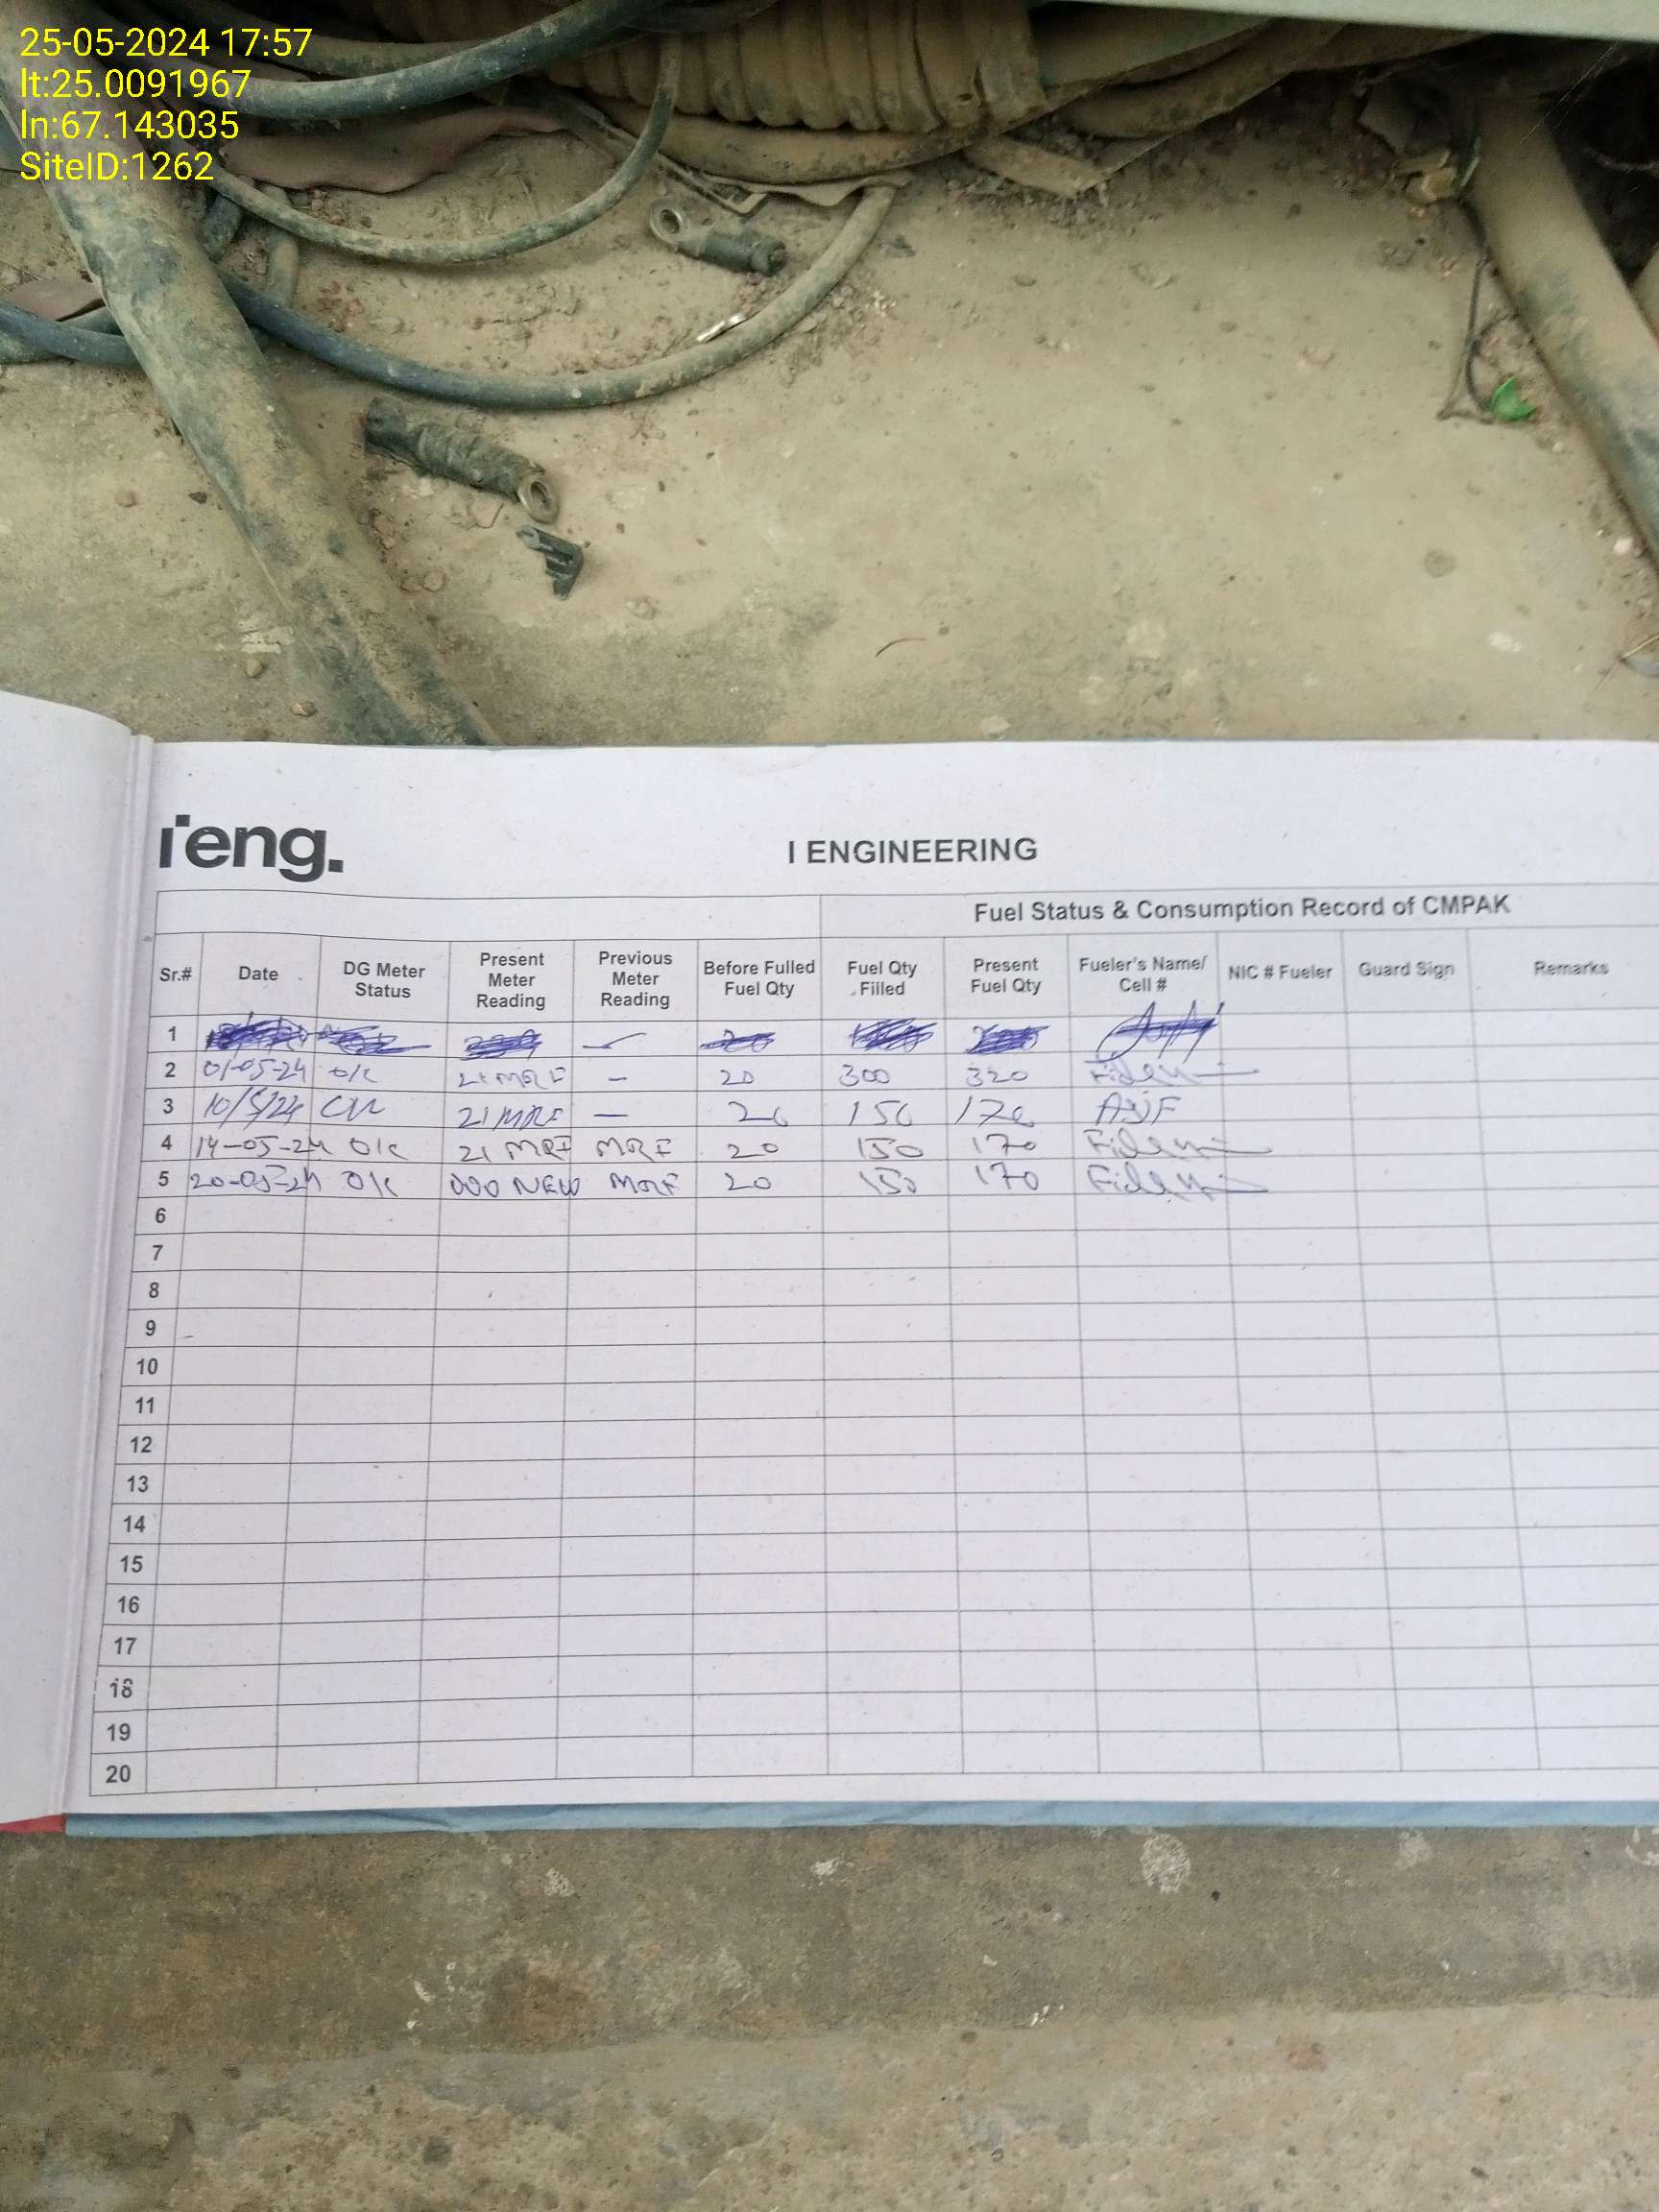 25-05-2024 17:57
lt:25.0091967
ln:67.143035
SiteID:1262
i'eng.
I ENGINEERING
Fuel Status & Consumption Record of CMPAK
Sr.# Date DG Meter Status Present Meter Reading Previous Meter Reading Before Fulled Fuel Qty Fuel Qty Filled Present Fuel Qty Fueler's Name/ Cell # NIC # Fueler Guard Sign Remarks
1
2 01-05-24 OK 21 MRF – 20 300 320
3 10/5/24 21 MRF – 20 150 170
4 14-05-24 OK 21 MRF MRF 20 150 170
5 20-05-24 OK 000 NEW MRF 20 150 170
6
7
8
9
10
11
12
13
14
15
16
17
18
19
20